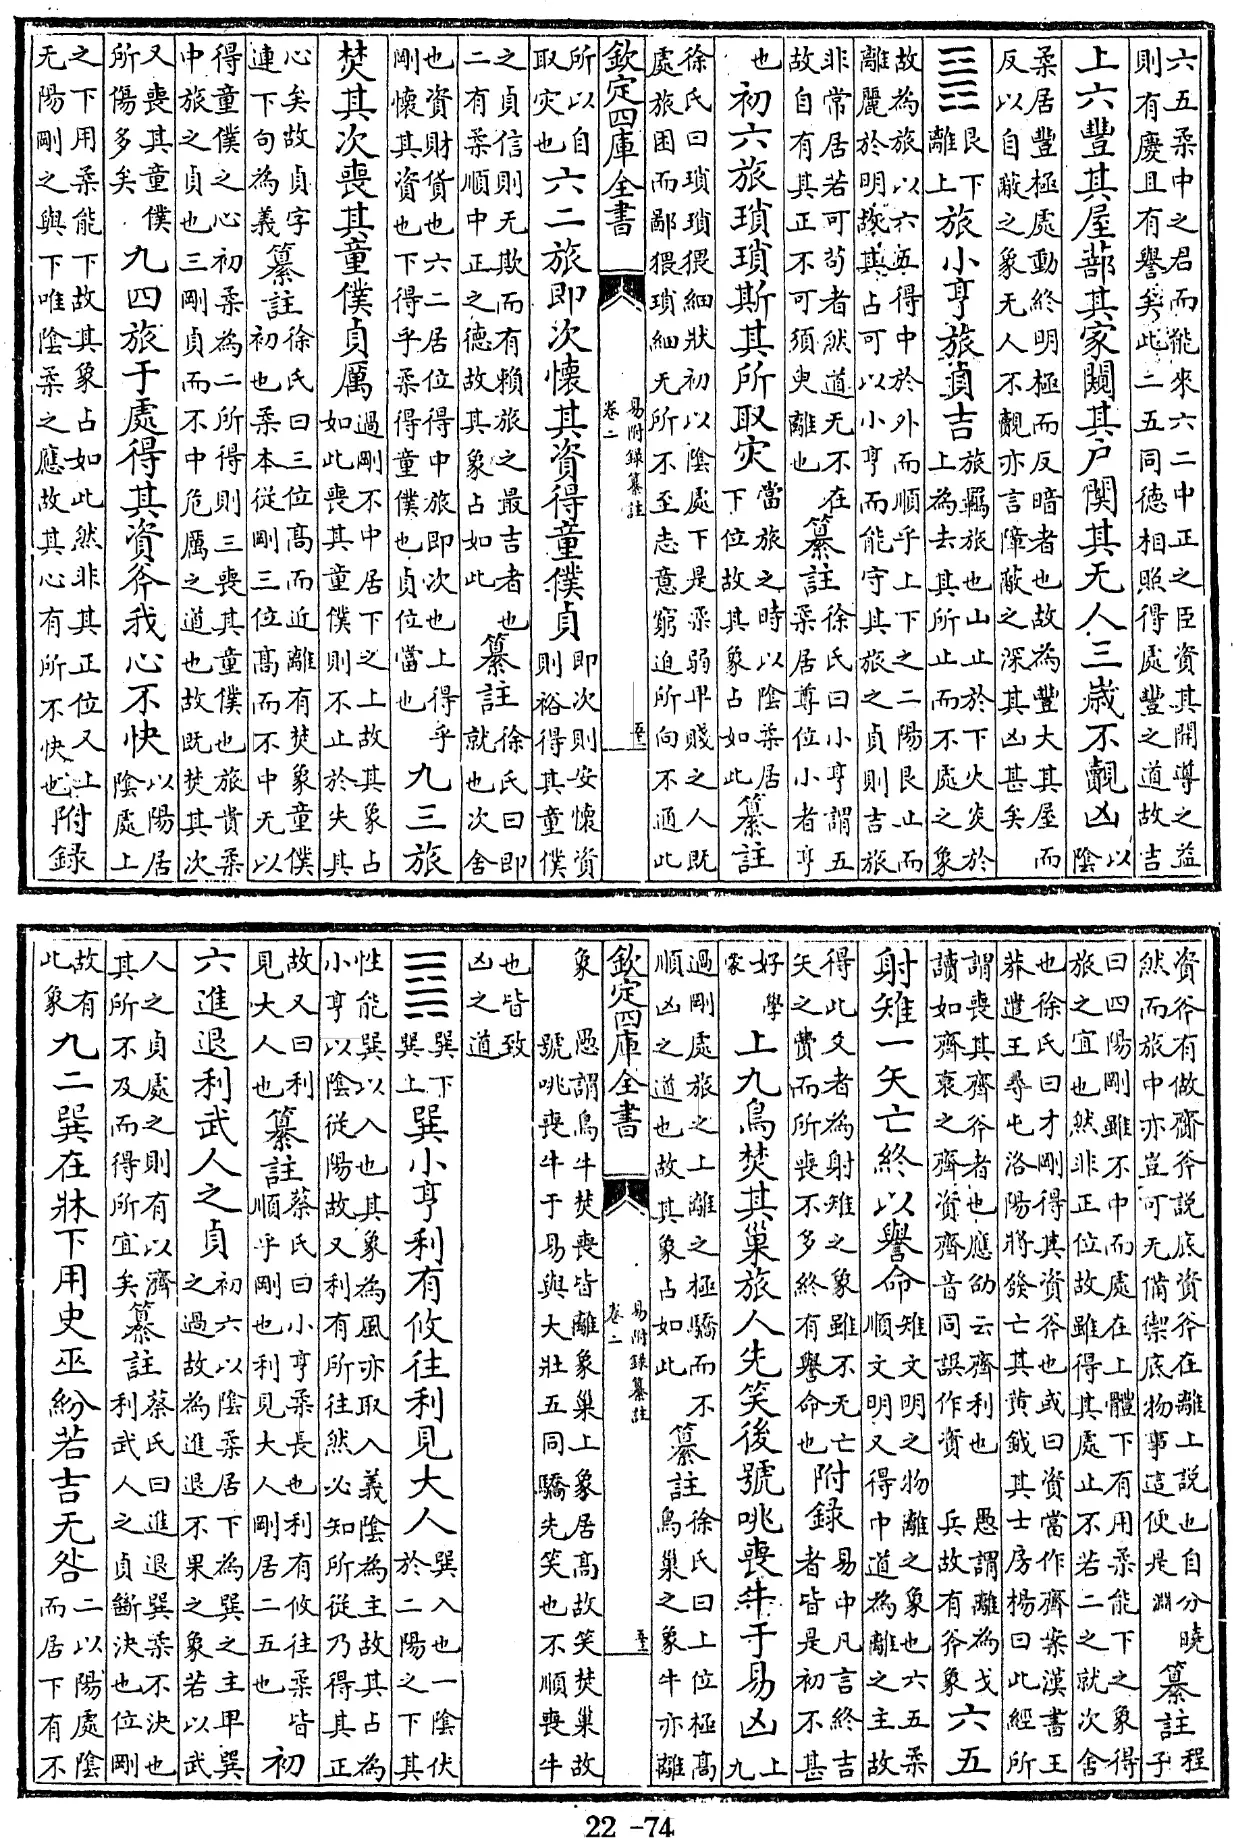 六五柔中之君而能來六二中正之臣資其開導之益
則有慶且有譽矣此二五同德相照得處豐之道故吉
上六豐其屋蔀其家闚其戶闃其无人三歲不覿凶以陰
柔居豐極處動終明極而反暗者也故為豐大其屋而
反以自蔽之象无人不覿亦言障蔽之深其凶甚矣
䷷艮下離上旅小亨旅貞吉旅羈旅也山止於下火炎於上為去其所止而不處之象
故為旅以六五得中於外而順乎上下之二陽艮止而
離麗於明故其占可以小亨而能守其旅之貞則吉旅
非常居若可苟者然道无不在故自有其正不可須臾離也纂註徐氏曰小亨謂五柔居尊位小者亨
也初六旅瑣瑣斯其所取災當旅之時以陰柔居下位故其象占如此纂註
徐氏曰瑣瑣猥細狀初以陰處下是柔弱卑賤之人既
處旅困而鄙猥瑣細无所不至志意窮迫所向不通此
欽定四庫全書 易附錄纂註 卷二
所以自取災也六二旅即次懷其資得童僕貞即次則安懷資則裕得其童僕
之貞信則无欺而有賴旅之最吉者也二有柔順中正之德故其象占如此纂註徐氏曰即就也次舍
也資財貨也六二居位得中旅即次也上得乎剛懷其資也下得乎柔得童僕也貞位當也九三旅
焚其次喪其童僕貞厲過剛不中居下之上故其象占如此喪其童僕則不止於失其
心矣故貞字連下句為義纂註徐氏曰三位高而近離有焚象童僕初也柔本從剛三位高而不中无以
得童僕之心初柔為二所得則三喪其童僕也旅貴柔
中旅之貞也三剛貞而不中危厲之道也故既焚其次
又喪其童僕所傷多矣九四旅于處得其資斧我心不快以陽居陰處上
之下用柔能下故其象占如此然非其正位又上无陽剛之與下唯陰柔之應故其心有所不快也附錄
資斧有做齋斧說底資斧在離上說也自分曉然而旅中亦豈可无備禦底物事這便是淵纂註程子
曰四陽剛雖不中而處在上體下有用柔能下之象得
旅之宜也然非正位故雖得其處止不若二之就次舍
也徐氏曰才剛得其資斧也或曰資當作齊案漢書王
莽遣王尋屯洛陽將發亡其黃鉞其士房楊曰此經所
謂喪其齊斧者也應劭云齊利也讀如齊衰之齊資齊音同誤作資愚謂離為戈兵故有斧象六五
射雉一矢亡終以譽命雉文明之物離之象也六五柔順文明又得中道為離之主故
得此爻者為射雉之象雖不无亡矢之費而所喪不多終有譽命也附錄易中凡言終吉者皆是初不甚
好學家上九鳥焚其巢旅人先笑後號咷喪牛于易凶上九
過剛處旅之上離之極驕而不順凶之道也故其象占如此纂註徐氏曰上位極高鳥巢之象牛亦離
欽定四庫全書 易附錄纂註 卷二
象愚謂鳥牛焚喪皆離象巢上象居高故笑焚巢故號咷喪牛于易與大壯五同驕先笑也不順喪牛
也皆致凶之道
䷸巽下巽上巽小亨利有攸往利見大人巽入也一陰伏於二陽之下其
性能巽以入也其象為風亦取入義陰為主故其占為
小亨以陰從陽故又利有所往然必知所從乃得其正
故又曰利見大人也纂註蔡氏曰小亨柔長也利有攸往柔皆順乎剛也利見大人剛居二五也初
六進退利武人之貞初六以陰柔居下為巽之主卑巽之過故為進退不果之象若以武
人之貞處之則有以濟其所不及而得所宜矣纂註蔡氏曰進退巽柔不決也利武人之貞斷決也位剛
故有此象九二巽在牀下用史巫紛若吉无咎二以陽處陰而居下有不
22 -74